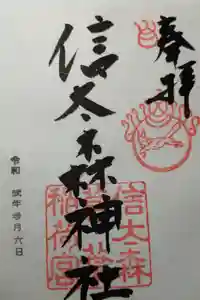 奉拝
信太森神社
信太森
葛葉
稲荷宮
令和 弐年 壱月 六日